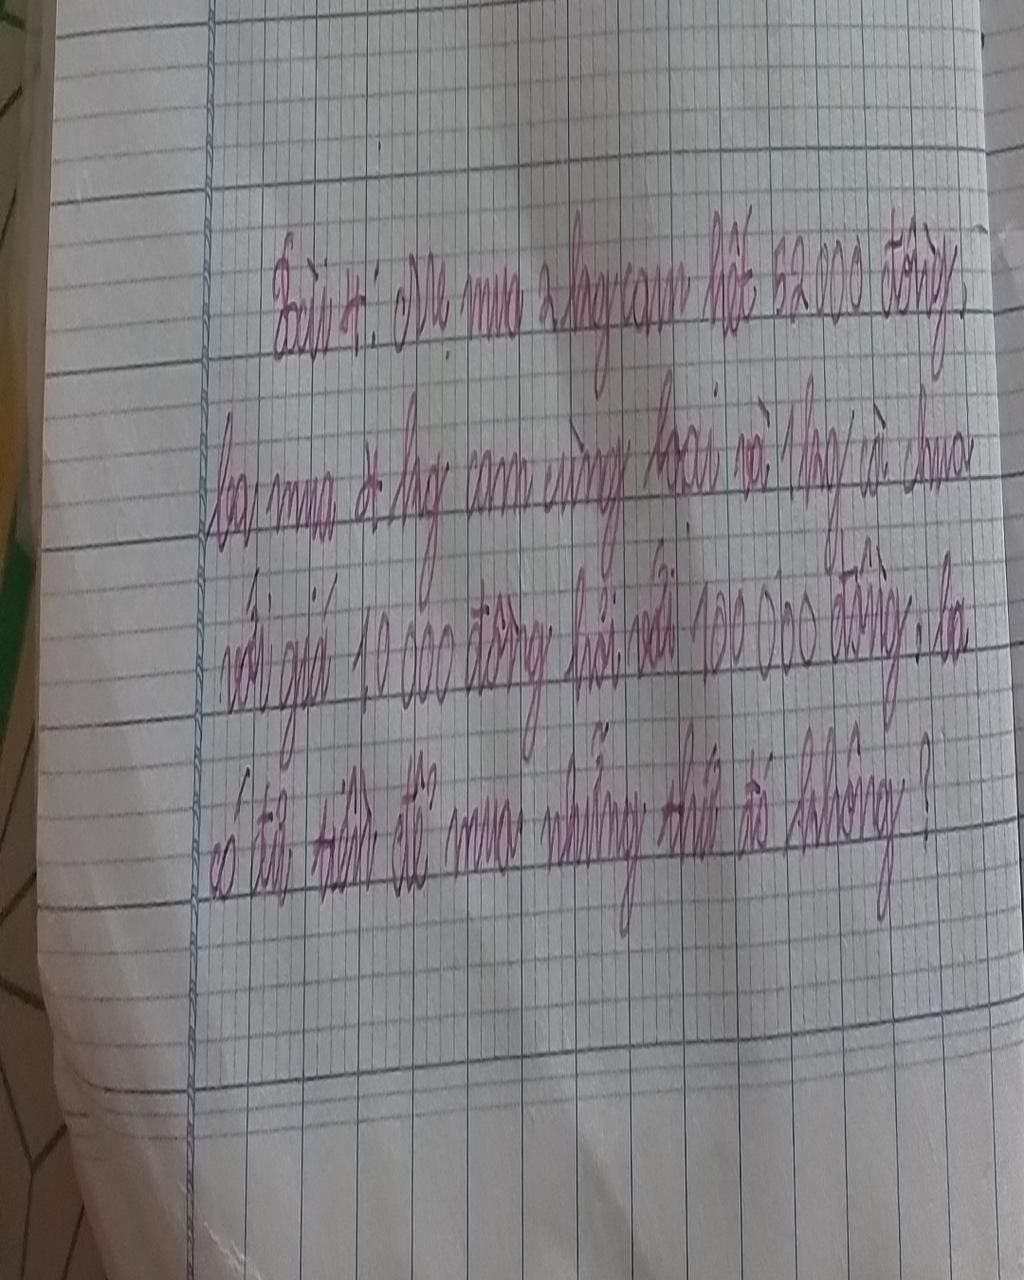 Bài 4: Mẹ mua 2 kg cam hết 52 000 đồng,
ba mua 4 kg cam cùng loại và 1 kg cà chua
với giá 10 000 đồng hỏi với 100 000 đồng, ba
có đủ tiền để mua những thứ đó không?